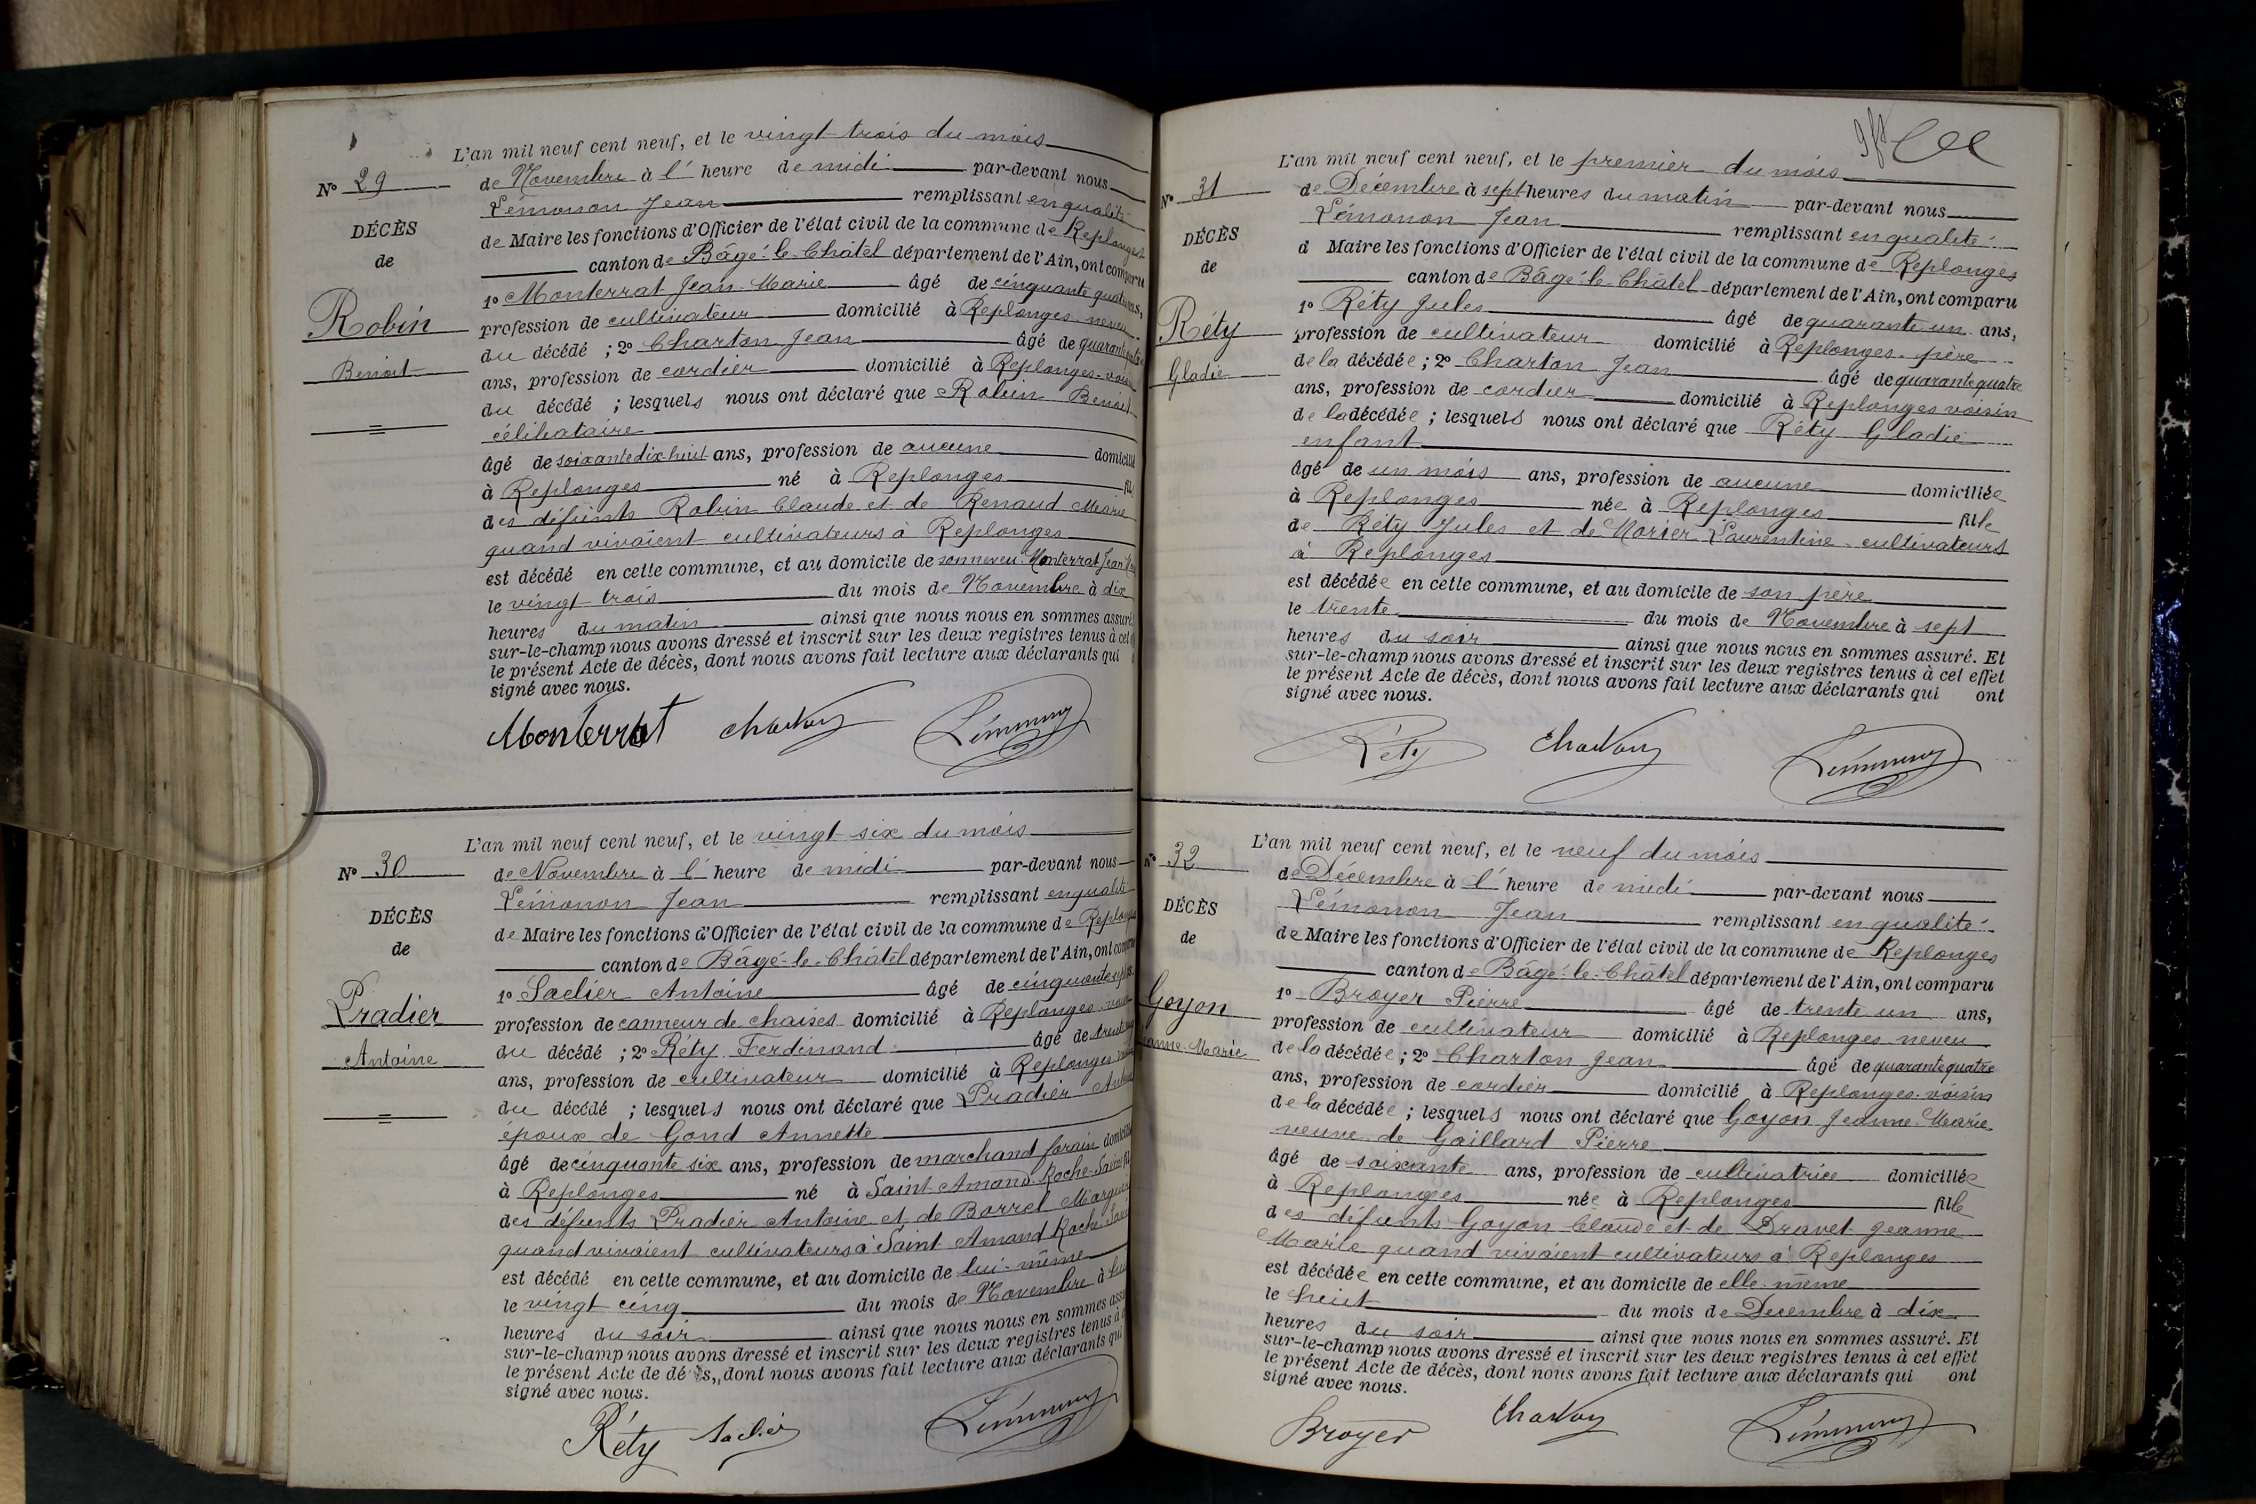 L'an mil neuf cent neuf, et le vingt trois du mois
N° 29
de Novembre à l'heure de midi par-devant nous
Lémonon Jean remplissant en qualité
DÉCÈS
de Maire les fonctions d'Officier de l'état civil de la commune de Replonges
de
canton de Bâgé-le-Châtel département de l'Ain, ont comparu
1° Monterrat Jean-Marie âgé de cinquante quatre ans,
Robin
profession de cultivateur domicilié à Replonges neveu
du décédé ; 2° Charton Jean âgé de quarante quatre
Benoit
ans, profession de cordier domicilié à Replonges-voisin
du décédé ; lesquels nous ont déclaré que Robin Benoit
célibataire
âgé de soixante dix-huit ans, profession de aucune domicilié
à Replonges né à Replonges fils
des défunts Robin Claude et de Renaud Marie
quand vivaient cultivateurs à Replonges
est décédé en cette commune, et au domicile de son neveu Monterrat Jean
le vingt trois du mois de Novembre à dix
heures du matin ainsi que nous nous en sommes assuré
sur-le-champ nous avons dressé et inscrit sur les deux registres tenus à cet
le présent Acte de décès, dont nous avons fait lecture aux déclarants qui
signé avec nous.
Monterrat Charton Lémonon
L'an mil neuf cent neuf, et le vingt six du mois
N° 30
de Novembre à l'heure de midi par-devant nous
Lémonon Jean remplissant en qualité
DÉCÈS
de Maire les fonctions d'Officier de l'état civil de la commune de Replonges
de
canton de Bâgé-le-Châtel département de l'Ain, ont comparu
1° Saclier Antoine âgé de cinquante
Pradier
profession de canneur de chaises domicilié à Replonges
du décédé ; 2° Réty Ferdinand âgé de
Antoine
ans, profession de cultivateur domicilié à Replonges
du décédé ; lesquels nous ont déclaré que Pradier Antoine
époux de Gond Annette
âgé de cinquante six ans, profession de marchand forain domicilié
à Replonges né à Saint-Amand-Roche-Savine
des défunts Pradier Antoine et de Borrel
quand vivaient cultivateurs à Saint Amand Roche
est décédé en cette commune, et au domicile de lui-même
le vingt cinq du mois de Novembre à
heures du soir ainsi que nous nous en sommes
sur-le-champ nous avons dressé et inscrit sur les deux registres tenus à
le présent Acte de décès, dont nous avons fait lecture aux déclarants qui
signé avec nous.
Réty Saclier Lémonon
L'an mil neuf cent neuf, et le premier du mois
N° 31
de Décembre à sept heures du matin par-devant nous
Lémonon Jean remplissant en qualité
DÉCÈS
d Maire les fonctions d'Officier de l'état civil de la commune de Replonges
de
canton de Bâgé-le-Châtel département de l'Ain, ont comparu
1° Réty Jules âgé de quarante un ans,
Réty
profession de cultivateur domicilié à Replonges-père
de la décédée ; 2° Charton Jean âgé de quarante quatre
Gladie
ans, profession de cordier domicilié à Replonges voisin
de la décédée ; lesquels nous ont déclaré que Réty Gladie
enfant
âgé de un mois ans, profession de aucune domiciliée
à Replonges née à Replonges fille
de Réty Jules et de Morier Laurentine cultivateurs
à Replonges
est décédée en cette commune, et au domicile de son père
le trente du mois de Novembre à sept
heures du soir ainsi que nous nous en sommes assuré. Et
sur-le-champ nous avons dressé et inscrit sur les deux registres tenus à cet effet
le présent Acte de décès, dont nous avons fait lecture aux déclarants qui ont
signé avec nous.
Réty Charton Lémonon
L'an mil neuf cent neuf, et le neuf du mois
N° 32
de Décembre à l'heure de midi par-devant nous
Lémonon Jean remplissant en qualité
DÉCÈS
de Maire les fonctions d'Officier de l'état civil de la commune de Replonges
de
canton de Bâgé-le-Châtel département de l'Ain, ont comparu
1° Broyer Pierre âgé de trente un ans,
Goyon
profession de cultivateur domicilié à Replonges neveu
anne-Marie
de la décédée ; 2° Charton Jean âgé de quarante quatre
ans, profession de cordier domicilié à Replonges-voisin
de la décédée ; lesquels nous ont déclaré que Goyon Jeanne-Marie
veuve de Gaillard Pierre
âgé de soixante ans, profession de cultivatrice domiciliée
à Replonges née à Replonges fille
des défunts Goyon Claude et de Dravet Jeanne
Marie quand vivaient cultivateurs à Replonges
est décédée en cette commune, et au domicile de elle-même
le huit du mois de Decembre à dix
heures du soir ainsi que nous nous en sommes assuré. Et
sur-le-champ nous avons dressé et inscrit sur les deux registres tenus à cet effet
le présent Acte de décès, dont nous avons fait lecture aux déclarants qui ont
signé avec nous.
Broyer Charton Lémonon